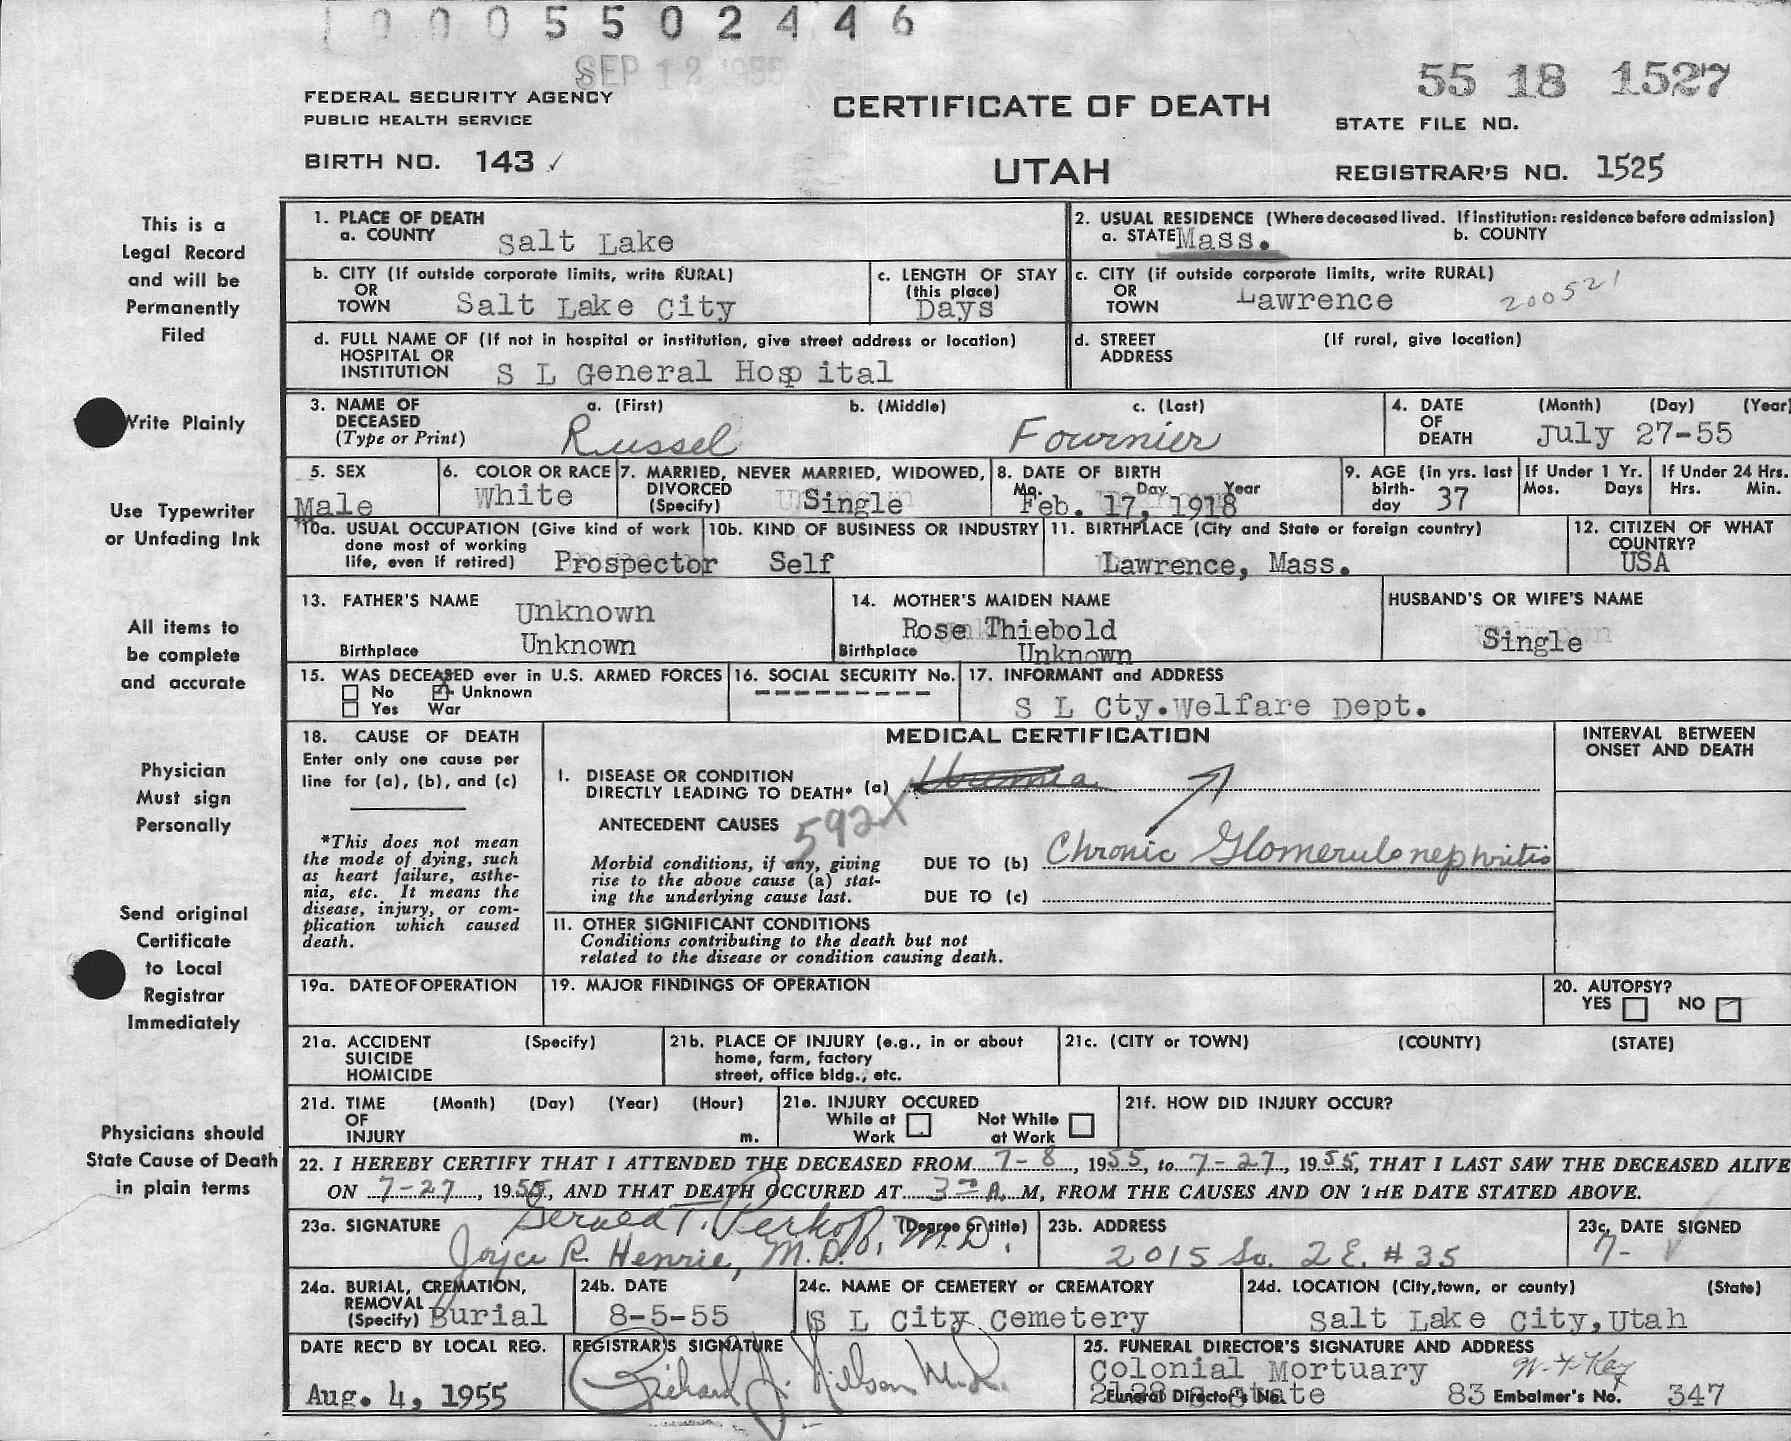 10005502446
SEP 12 1955
FEDERAL SECURITY AGENCY
PUBLIC HEALTH SERVICE
BIRTH NO. 143 ✓
CERTIFICATE OF DEATH
UTAH
55 18 1527
STATE FILE NO.
REGISTRAR'S NO. 1525
This is a
Legal Record
and will be
Permanently
Filed
Write Plainly
Use Typewriter
or Unfading Ink
All items to
be complete
and accurate
Physician
Must sign
Personally
Send original
Certificate
to Local
Registrar
Immediately
Physicians should
State Cause of Death
in plain terms
1. PLACE OF DEATH
a. COUNTY Salt Lake
2. USUAL RESIDENCE (Where deceased lived. If institution: residence before admission)
a. STATE Mass. b. COUNTY
b. CITY (If outside corporate limits, write RURAL)
OR
TOWN Salt Lake City
c. LENGTH OF STAY
(this place)
Days
c. CITY (if outside corporate limits, write RURAL)
OR
TOWN Lawrence 200521
d. FULL NAME OF (If not in hospital or institution, give street address or location)
HOSPITAL OR
INSTITUTION S L General Hosp ital
d. STREET (If rural, give location)
ADDRESS
3. NAME OF a. (First) b. (Middle) c. (Last)
DECEASED
(Type or Print) Russel Fournier
4. DATE (Month) (Day) (Year)
OF
DEATH July 27-55
5. SEX
Male
6. COLOR OR RACE
White
7. MARRIED, NEVER MARRIED, WIDOWED,
DIVORCED
(Specify) Single
8. DATE OF BIRTH
Mo. Day Year
Feb. 17, 1918
9. AGE (in yrs. last
birth-
day 37
If Under 1 Yr.
Mos. Days
If Under 24 Hrs.
Hrs. Min.
10a. USUAL OCCUPATION (Give kind of work
done most of working
life, even if retired) Prospector
10b. KIND OF BUSINESS OR INDUSTRY
Self
11. BIRTHPLACE (City and State or foreign country)
Lawrence, Mass.
12. CITIZEN OF WHAT
COUNTRY?
USA
13. FATHER'S NAME Unknown
Birthplace Unknown
14. MOTHER'S MAIDEN NAME
Rose Thiebold
Birthplace Unknown
HUSBAND'S OR WIFE'S NAME
Single
15. WAS DECEASED ever in U.S. ARMED FORCES
No Unknown
Yes War
16. SOCIAL SECURITY No.
----------
17. INFORMANT and ADDRESS
S L Cty.Welfare Dept.
18. CAUSE OF DEATH
Enter only one cause per
line for (a), (b), and (c)
*This does not mean
the mode of dying, such
as heart failure, asthe-
nia, etc. It means the
disease, injury, or com-
plication which caused
death.
MEDICAL CERTIFICATION
INTERVAL BETWEEN
ONSET AND DEATH
I. DISEASE OR CONDITION
DIRECTLY LEADING TO DEATH* (a) Uremia
ANTECEDENT CAUSES 592X
Morbid conditions, if any, giving
rise to the above cause (a) stat-
ing the underlying cause last.
DUE TO (b) Chronic Glomerulonephritis
DUE TO (c)
11. OTHER SIGNIFICANT CONDITIONS
Conditions contributing to the death but not
related to the disease or condition causing death.
19a. DATE OF OPERATION
19. MAJOR FINDINGS OF OPERATION
20. AUTOPSY?
YES NO
21a. ACCIDENT (Specify)
SUICIDE
HOMICIDE
21b. PLACE OF INJURY (e.g., in or about
home, farm, factory
street, office bldg., etc.
21c. (CITY or TOWN) (COUNTY) (STATE)
21d. TIME (Month) (Day) (Year) (Hour)
OF
INJURY m.
21e. INJURY OCCURED
While at Not While
Work at Work
21f. HOW DID INJURY OCCUR?
22. I HEREBY CERTIFY THAT I ATTENDED THE DECEASED FROM 7-8, 1955, to 7-27, 1955, THAT I LAST SAW THE DECEASED ALIVE
ON 7-27, 1955, AND THAT DEATH OCCURED AT 3 A. M, FROM THE CAUSES AND ON THE DATE STATED ABOVE.
23a. SIGNATURE (Degree or title)
Gerald T. Perkoff, M.D.
Joyce R. Henrie, M.D.
23b. ADDRESS
2015 So. 2 E. #35
23c. DATE SIGNED
7-
24a. BURIAL, CREMATION,
REMOVAL
(Specify) Burial
24b. DATE
8-5-55
24c. NAME OF CEMETERY or CREMATORY
S L City Cemetery
24d. LOCATION (City, town, or county) (State)
Salt Lake City, Utah
DATE REC'D BY LOCAL REG.
Aug. 4, 1955
REGISTRAR'S SIGNATURE
Richard J. Nilson M.D.
25. FUNERAL DIRECTOR'S SIGNATURE AND ADDRESS
Colonial Mortuary
State
Funeral Director's No. 83 Embalmer's No. 347